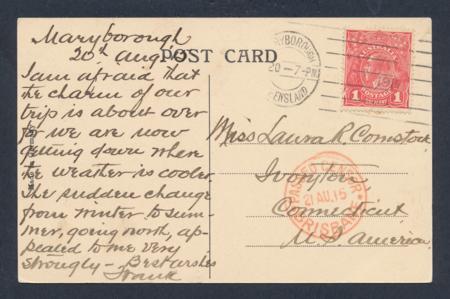 Maryborough
20th Aug
POST CARD
I am afraid that
the charm of our
trip is about over
for we are now
getting down where
the weather is cooler.
The sudden change
from winter to sum-
mer, going north, ap-
pealed to me very
strongly — Best wishes
Frank
Miss Laura R. Comstock
Ivoryton
Connecticut
U.S. America
RYBOROUGH
20 — 7-PM
ENSLAND
AUSTRALIA
POSTAGE
1 1
PASSED CENSOR
21 AU. 15
BRISBANE